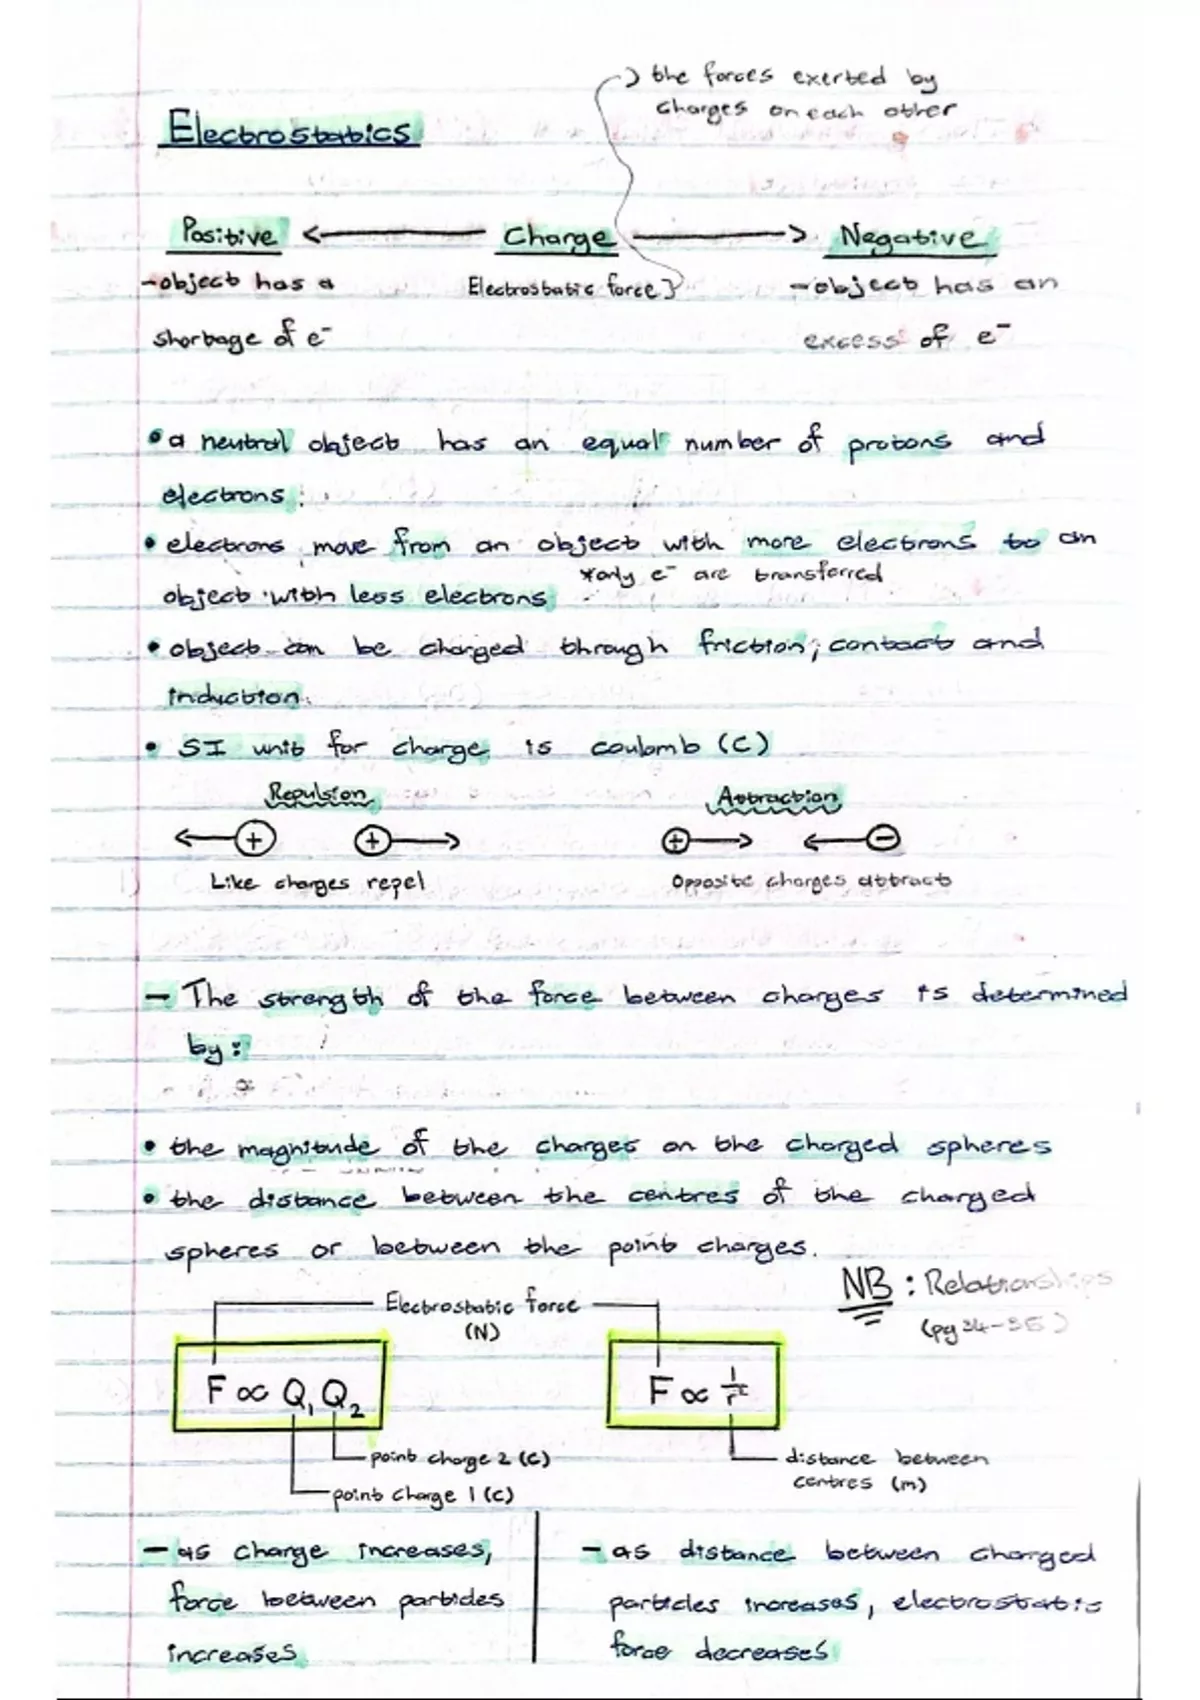 the forces exerted by
charges on each other
Electrostatics
Positive Charge Negative
-object has a Electrostatic force} -object has an
shortage of e⁻ excess of e⁻
• a neutral object has an equal number of protons and
electrons.
• electrons move from an object with more electrons to an
*only e⁻ are transferred
object with less electrons
• object can be charged through friction, contact and
induction.
• SI unit for charge is coulomb (C)
Repulsion Attraction
+ + + −
Like charges repel Opposite charges attract
- The strength of the force between charges is determined
by:
• the magnitude of the charges on the charged spheres
• the distance between the centres of the charged
spheres or between the point charges.
NB : Relationships
(pg 34-35)
Electrostatic force
(N)
F ∝ Q₁Q₂ F ∝ 1/r²
point charge 2 (C) distance between
centres (m)
point charge 1 (C)
- as charge increases, - as distance between charged
force between particles particles increases, electrostatic
increases force decreases